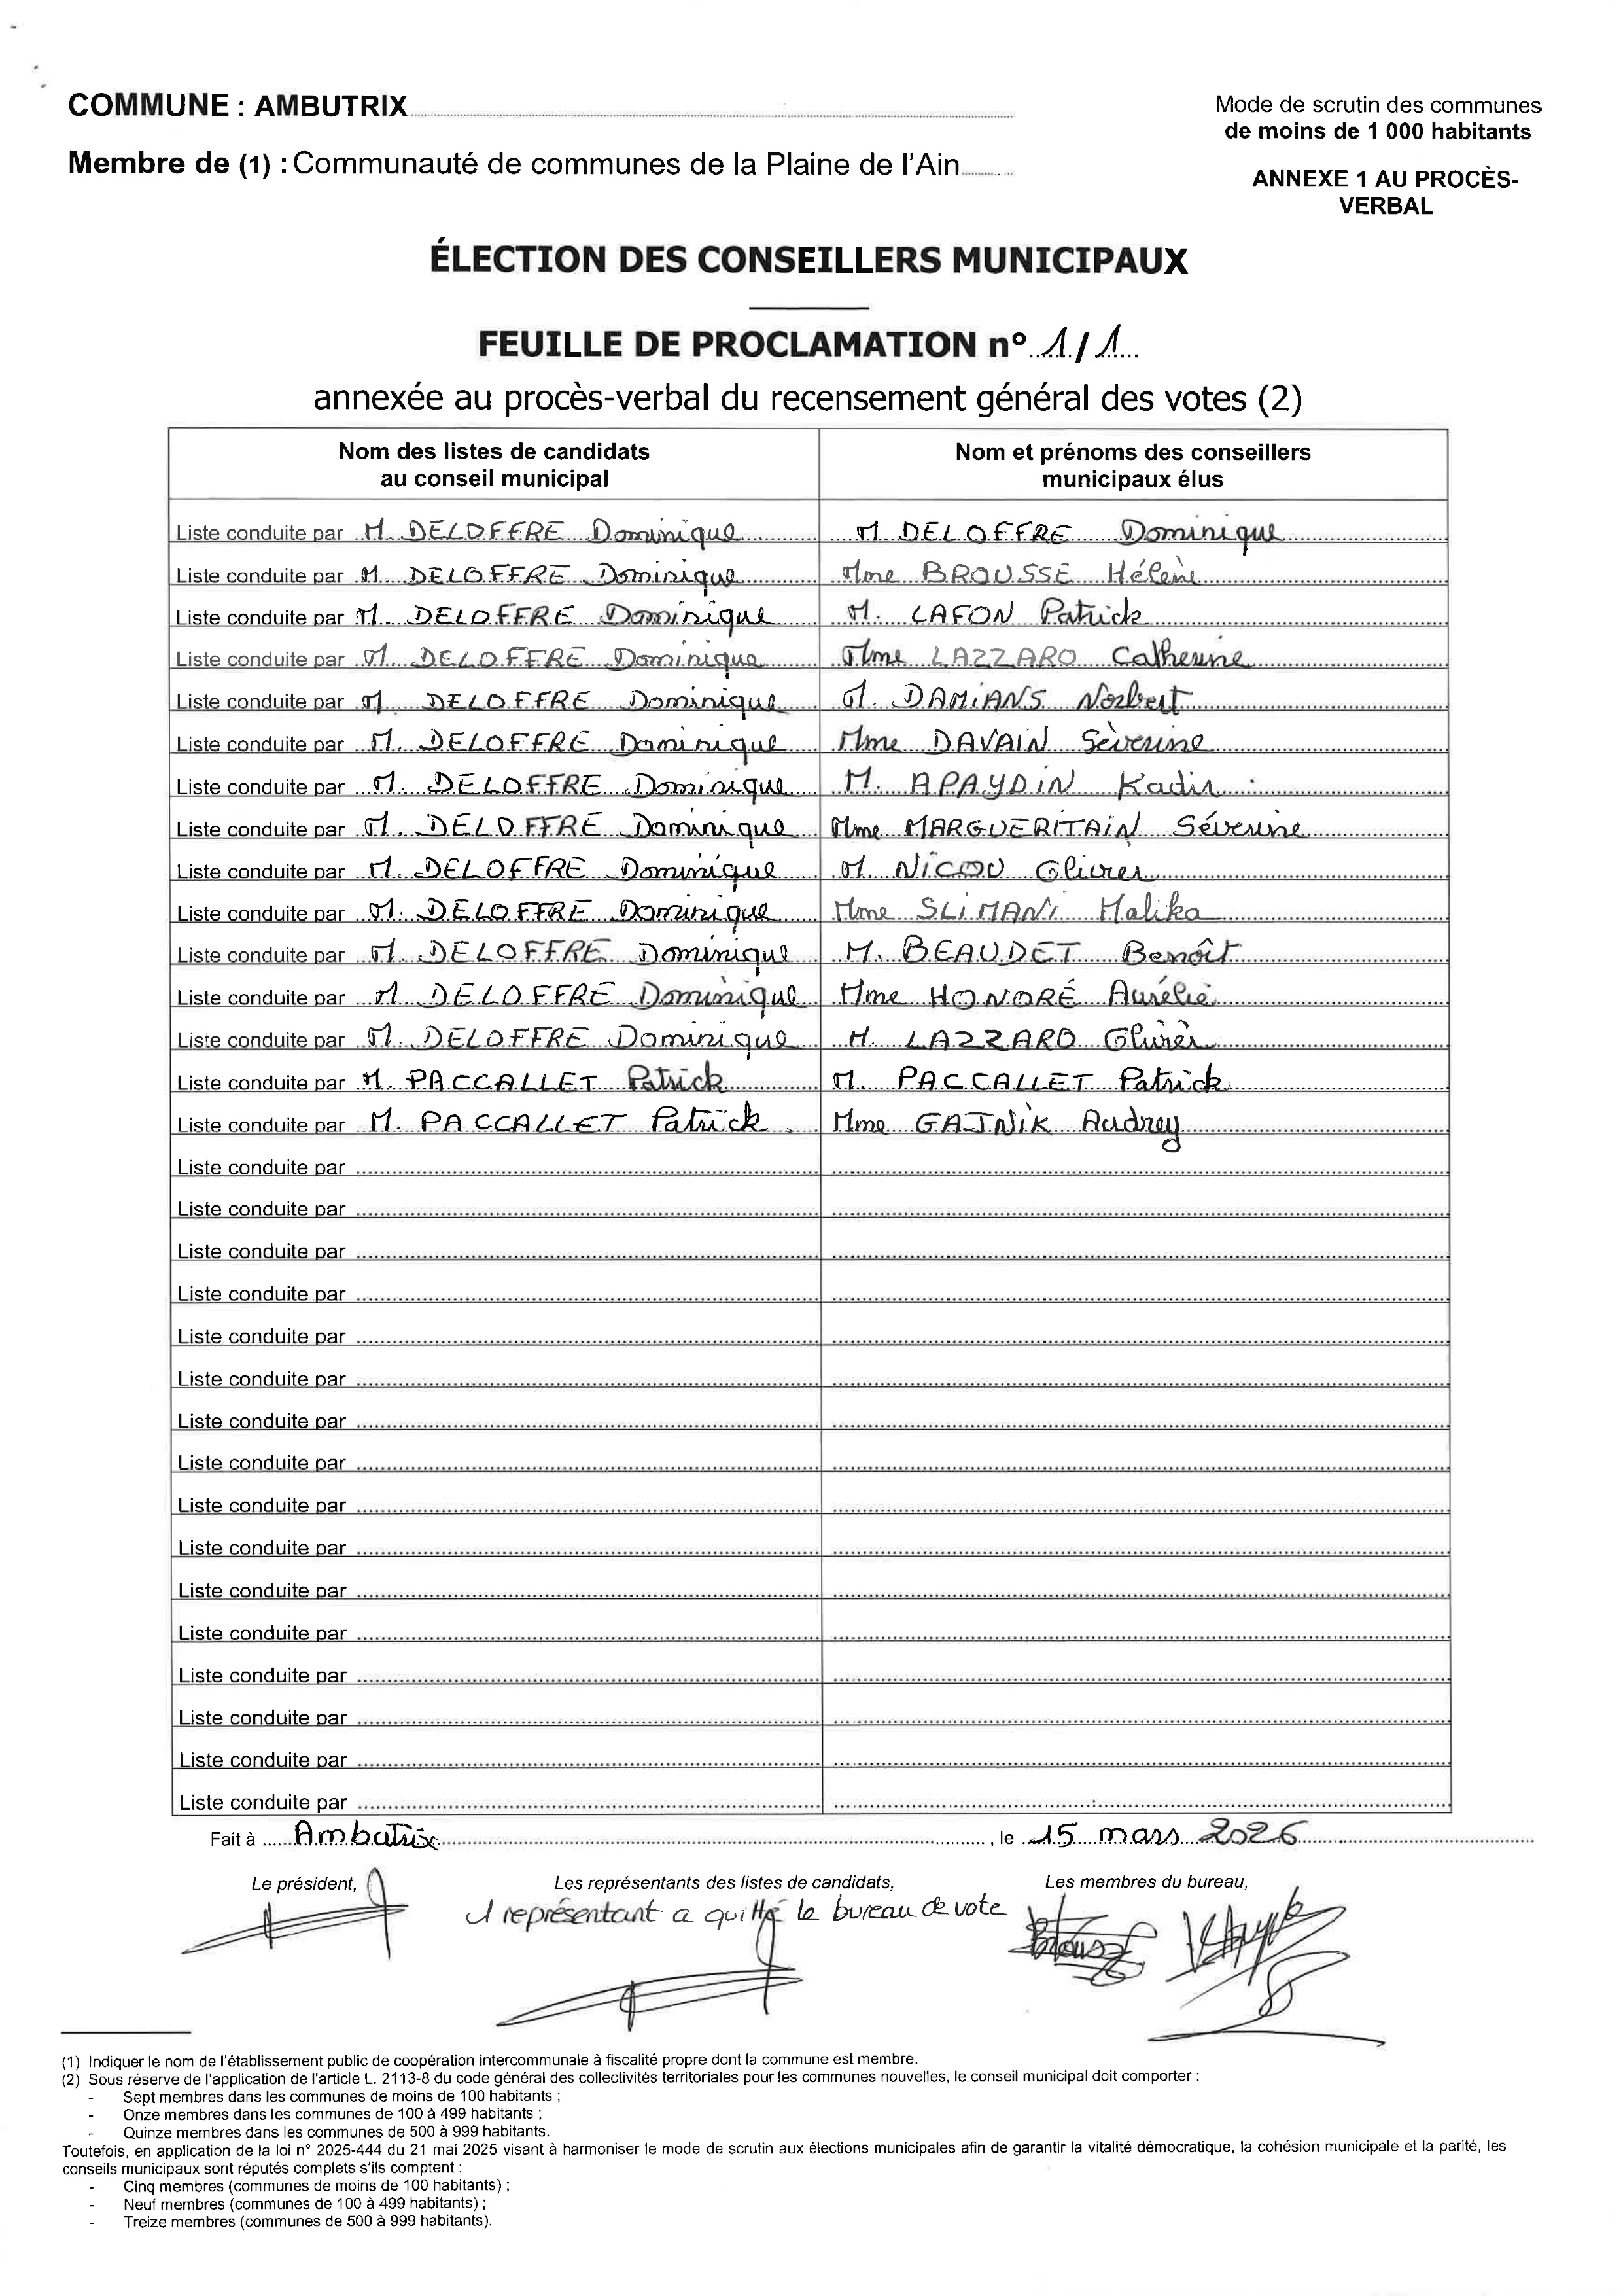 COMMUNE : AMBUTRIX
Membre de (1) : Communauté de communes de la Plaine de l'Ain
Mode de scrutin des communes
de moins de 1 000 habitants
ANNEXE 1 AU PROCÈS-
VERBAL
ÉLECTION DES CONSEILLERS MUNICIPAUX
FEUILLE DE PROCLAMATION n° 1/1
annexée au procès-verbal du recensement général des votes (2)
Nom des listes de candidats
au conseil municipal
Nom et prénoms des conseillers
municipaux élus
Liste conduite par M. DELOFFRE Dominique M. DELOFFRE Dominique
Liste conduite par M. DELOFFRE Dominique Mme BROUSSE Hélène
Liste conduite par M. DELOFFRE Dominique M. LAFON Patrick
Liste conduite par M. DELOFFRE Dominique Mme LAZZARO Catherine
Liste conduite par M. DELOFFRE Dominique M. DAMIANS Norbert
Liste conduite par M. DELOFFRE Dominique Mme DAVAIN Séverine
Liste conduite par M. DELOFFRE Dominique M. APAYDIN Kadir
Liste conduite par M. DELOFFRE Dominique Mme MARGUERITAIN Séverine
Liste conduite par M. DELOFFRE Dominique M. NICOU Olivier
Liste conduite par M. DELOFFRE Dominique Mme SLIMANI Malika
Liste conduite par M. DELOFFRE Dominique M. BEAUDET Benoît
Liste conduite par M. DELOFFRE Dominique Mme HONORÉ Aurélie
Liste conduite par M. DELOFFRE Dominique M. LAZZARO Olivier
Liste conduite par M. PACCALLET Patrick M. PACCALLET Patrick
Liste conduite par M. PACCALLET Patrick Mme GAJNIK Audrey
Liste conduite par
Liste conduite par
Liste conduite par
Liste conduite par
Liste conduite par
Liste conduite par
Liste conduite par
Liste conduite par
Liste conduite par
Liste conduite par
Liste conduite par
Liste conduite par
Liste conduite par
Liste conduite par
Liste conduite par
Liste conduite par
Fait à Ambutrix, le 15 mars 2026
Le président,
Les représentants des listes de candidats,
Les membres du bureau,
1 représentant a quitté le bureau de vote
(1) Indiquer le nom de l'établissement public de coopération intercommunale à fiscalité propre dont la commune est membre.
(2) Sous réserve de l'application de l'article L. 2113-8 du code général des collectivités territoriales pour les communes nouvelles, le conseil municipal doit comporter :
- Sept membres dans les communes de moins de 100 habitants ;
- Onze membres dans les communes de 100 à 499 habitants ;
- Quinze membres dans les communes de 500 à 999 habitants.
Toutefois, en application de la loi n° 2025-444 du 21 mai 2025 visant à harmoniser le mode de scrutin aux élections municipales afin de garantir la vitalité démocratique, la cohésion municipale et la parité, les
conseils municipaux sont réputés complets s'ils comptent :
- Cinq membres (communes de moins de 100 habitants) ;
- Neuf membres (communes de 100 à 499 habitants) ;
- Treize membres (communes de 500 à 999 habitants).